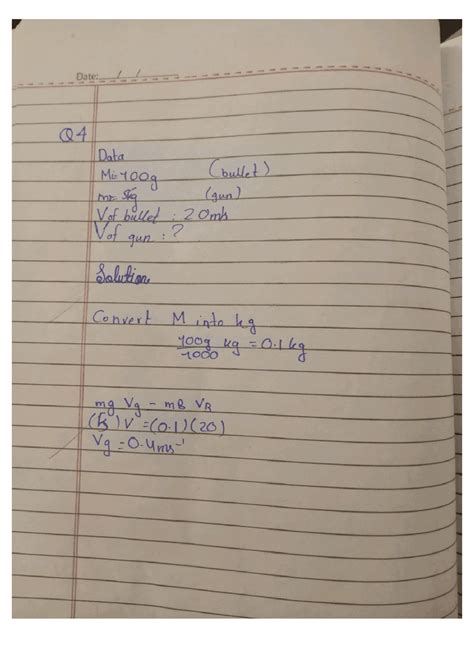 Date: / /
Q4
Data
M= 100g (bullet)
m= 5kg (gun)
V of bullet : 20m/s
V of gun : ?
Solution
Convert M into kg
100g kg = 0.1 kg
1000
mg Vg = mB VB
(5) V = (0.1)(20)
Vg = 0.4ms⁻¹